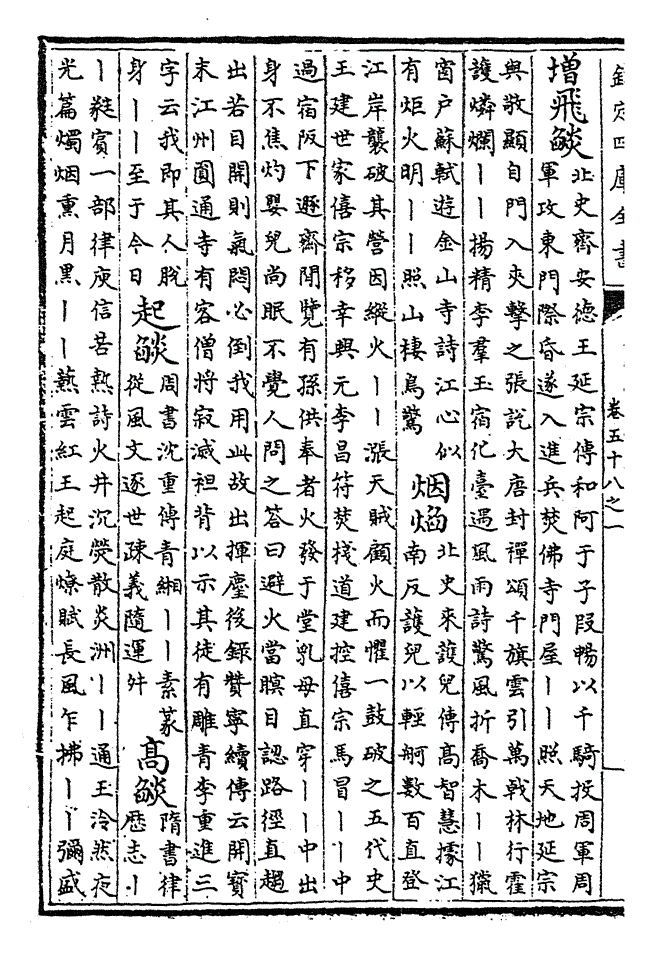 欽定四庫全書
卷五十八之一
增飛燄
北史齊安德王延宗傳和阿于子段暢以千騎投周軍周
軍攻東門際昏遂入進兵焚佛寺門屋丨丨照天地延宗
與敬顯自門入夾擊之張說大唐封禪頌千旗雲引萬戟林行霍
護燐爛丨丨揚精李羣玉宿化臺遇風雨詩驚風折喬木丨丨獵
窗戶蘇軾遊金山寺詩江心似
有炬火明丨丨照山棲鳥驚
烟焰
北史來護兒傳高智慧據江
南反護兒以輕舸數百直登
江岸襲破其營因縱火丨丨漲天賊顧火而懼一鼓破之五代史
王建世家僖宗移幸興元李昌符焚棧道建控僖宗馬冒丨丨中
過宿阪下遯齋閒覽有孫供奉者火發于堂乳母直穿丨丨中出
身不焦灼嬰兒尚眠不覺人問之答曰避火當瞑目認路徑直趨
出若目開則氣悶必倒我用此故出揮麈後錄贊寧續傳云開寶
末江州圓通寺有客僧將寂滅袒背以示其徒有雕青李重進三
字云我即其人脫
身丨丨至于今日
起燄
周書沈重傳青緗丨丨素篆
從風文逐世疎義隨運舛
高燄
隋書律
歷志丨
丨蕤賓一部律庾信苦熱詩火井沉熒散炎洲丨丨通王泠然夜
光篇燭烟熏月黑丨丨爇雲紅王起庭燎賦長風乍拂丨丨彌盛